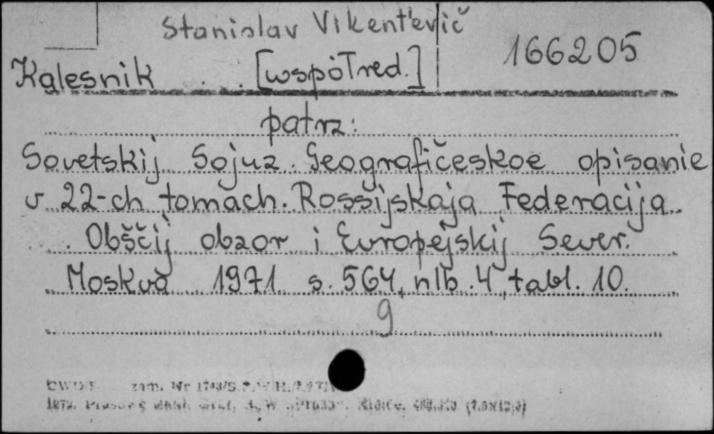 Stanislav Vikent'evič
166205
Kalesnik [współred.]
patrz:
Sovetskij Sojuz. Geografičeskoe opisanie
v 22-ch tomach. Rossijskaja Federacija.
Obščij obzor i Evropejskij Sever.
Moskva 1971 s. 564, nlb. 4, tabl. 10.
9
zam. Nr